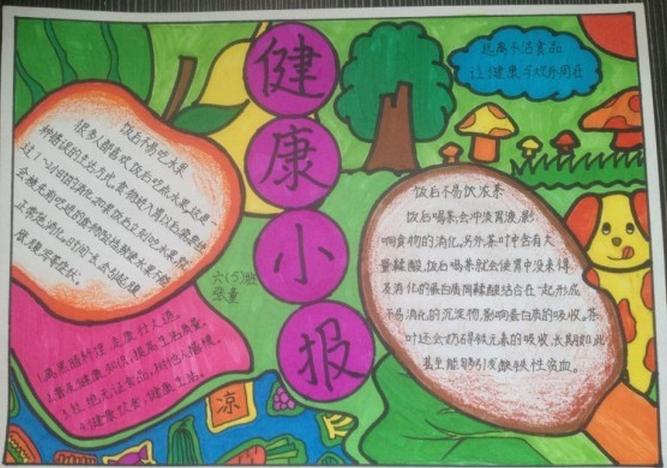 健
康
小
报
远离不洁食品
让健康与欢乐同在
饭后不易吃水果
很多人都喜欢饭后吃点水果,这是一
种错误的生活方式。食物进入胃以后需要经
过1~2小时的消化,如果饭后立刻吃水果,就
会被先到
正常地消化。时间一长,会引起腹
胀、腹泻等症状。
六(5)班
张童
饭后不易饮浓茶
饭后喝茶,会冲淡胃液,影
响食物的消化。另外,茶叶中含有大
量鞣酸,饭后喝茶就会使胃中没来得
及消化的蛋白质同鞣酸结合在一起形成
不易消化的沉淀物,影响蛋白质的吸收。茶
叶还会妨碍铁元素的吸收,长期如此
甚至能够引发缺铁性贫血。
提高生活质量。
3.杜绝无证食品,
4.健康饮食,健康生活。
凉